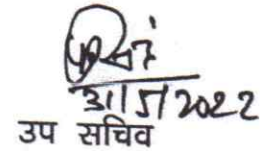 31/5/2022
उप सचिव